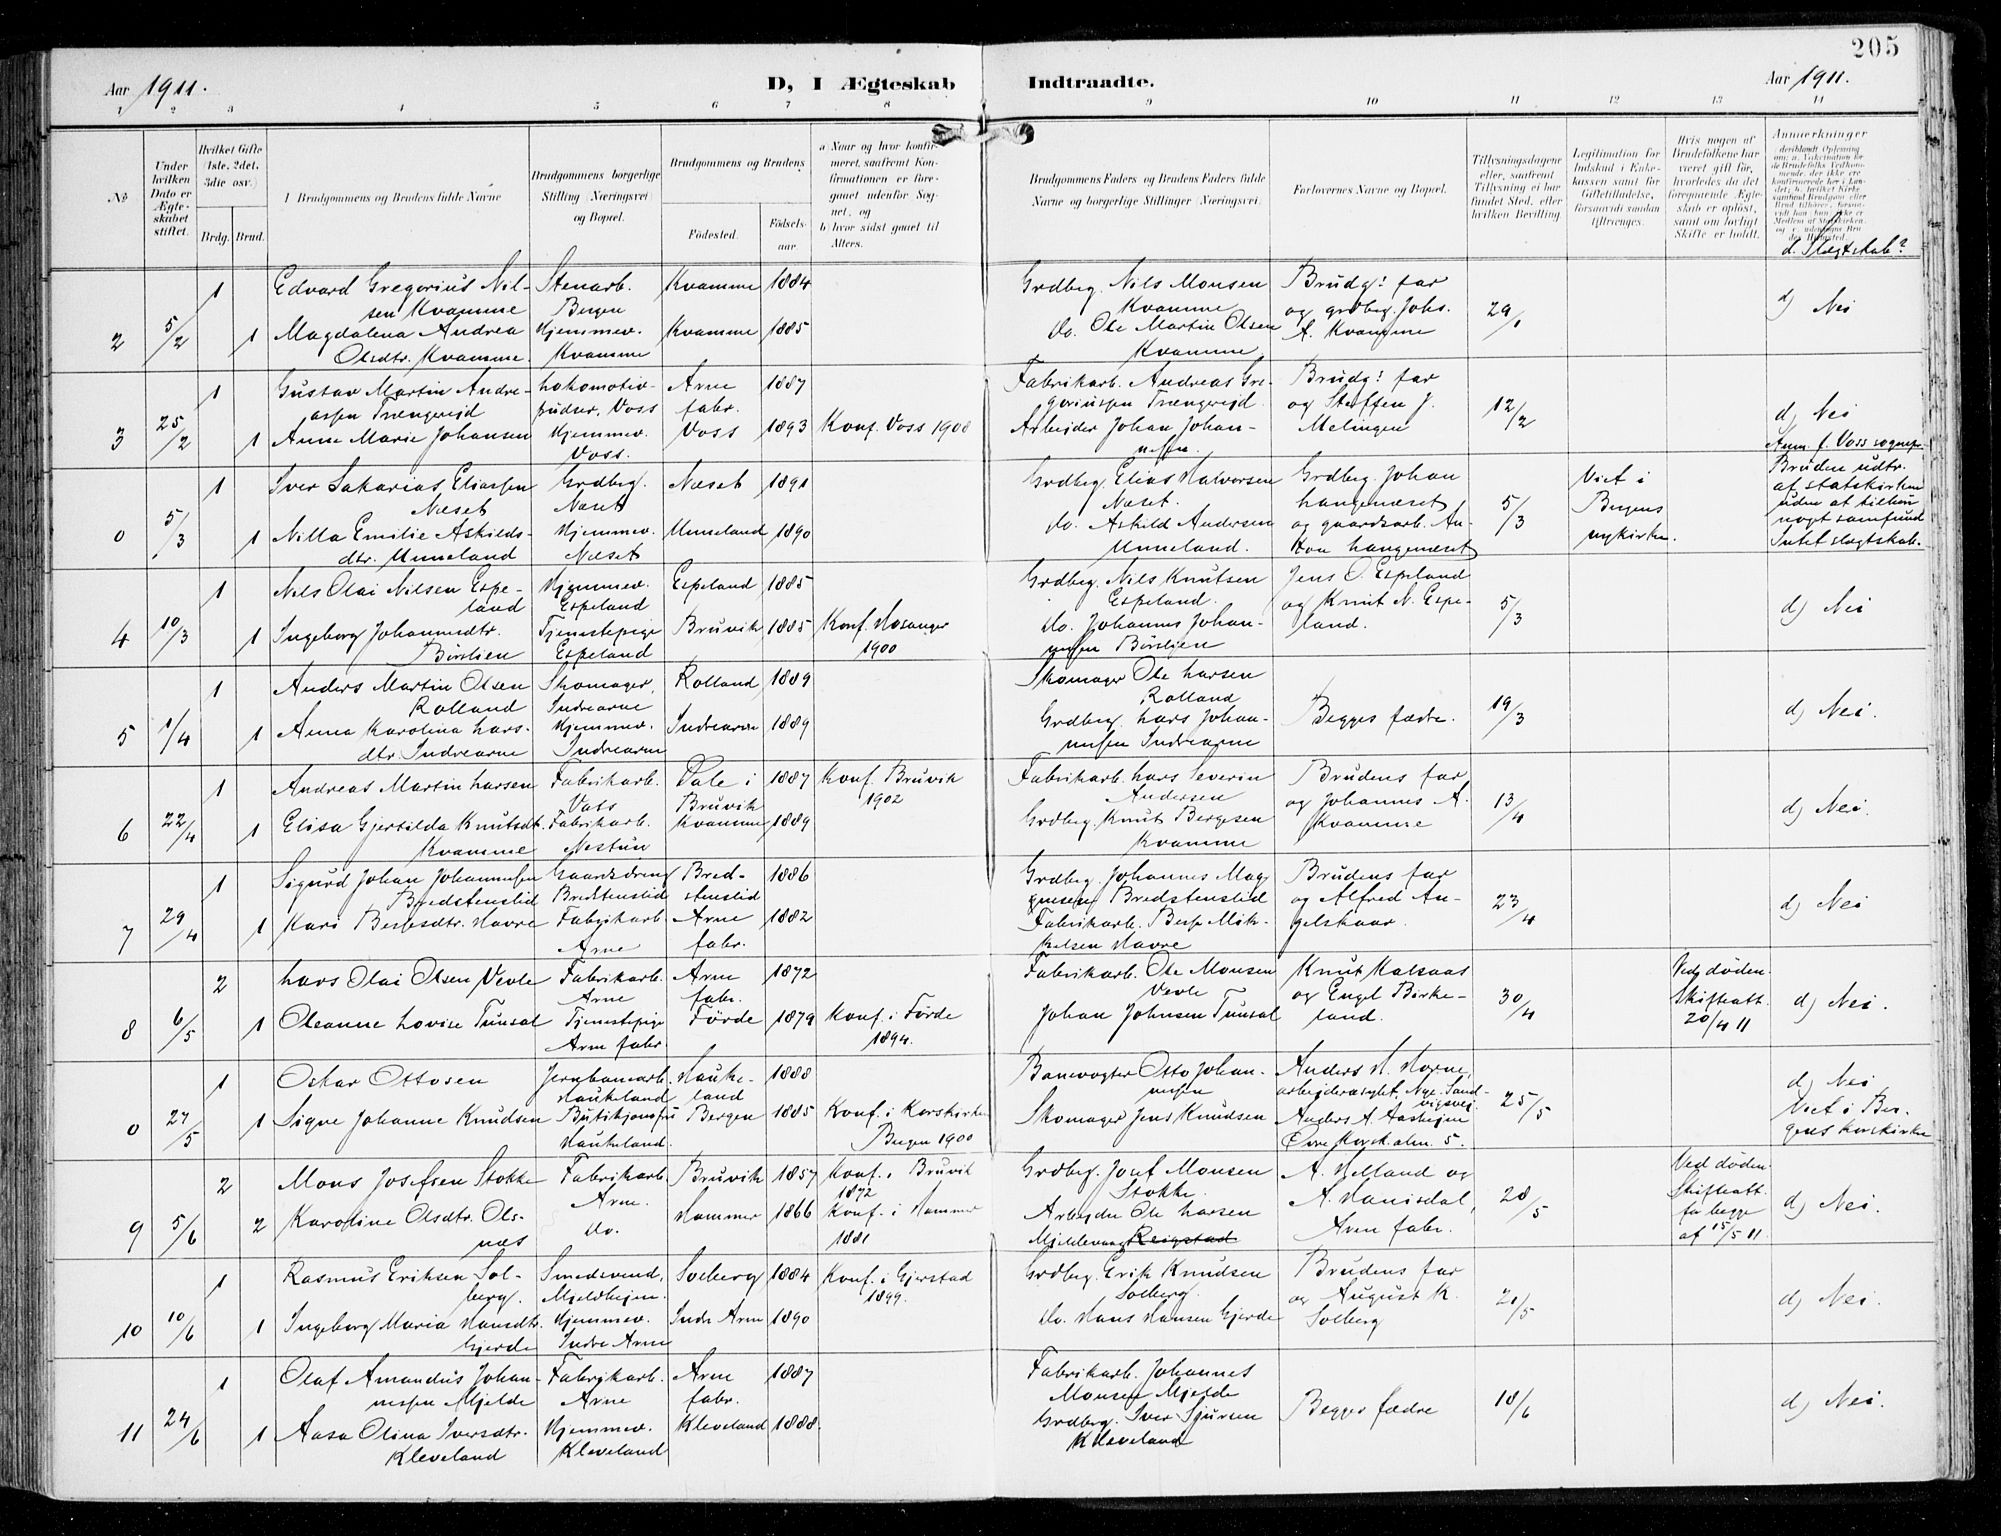 205
Aar 1911.
D, I Ægteskab Indtraadte.
Aar 1911.
1 2 3 4 5 6 7 8 9 10 11 12 13 14
No
Under hvilken Dato er Ægteskabet stiftet.
Hvilket Gifte (1ste, 2det, 3die osv.)
Brdg. Brud.
I Brudgommens og Brudens fulde Navne
Brudgommens borgerlige Stilling (Næringsvei) og Bopæl.
Brudgommens og Brudens
Fødested. Fødselsaar.
a) Naar og hvor konfirmeret, saafremt Konfirmationen er foregaaet udenfor Sognet, og
b) hvor sidst gaaet til Alters.
Brudgommens Faders og Brudens Faders fulde Navne og borgerlige Stillinger (Næringsvei).
Forlovernes Navne og Bopæl.
Tillysningsdagene eller, saafremt Tillysning ei har fundet Sted, efter hvilken Bevilling.
Legitimation for Indskud i Enkekassen samt for Giftetilladelse, forsaavidt saadan tiltrænges.
Hvis nogen af Brudefolkene har været gift før, hvorledes da det foregaaende Ægteskab er opløst, samt om lovligt Skifte er holdt.
Anmerkninger
d. Slægtskab?
2 5/2 1 Edvard Gregorius Nilsen Kvamme Stenarb. Bergen Kvamme 1884 Grdbrg. Nils Monsen Kvamme Brudg! far og grdbrg. Johs. A. Kvamme 29/1 d) Nei
1 Magdalena Andrea Olsdtr. Kvamme. Hjemmev. Kvamme Kvamme 1885 do. Ole Martin Olsen Kvamme
3 25/2 1 Gustav Martin Andreassen Trængereid Lokomotivpudser, Voss Arne fabr. 1887 Fabrikarb. Andreas Gregoriussen Trængereid Brudg! far og Steffen J. Melingen 12/2 d) Nei
1 Anne Marie Johansen Hjemmev. Voss. Voss 1893 Konf. Voss 1908 Arbeider Johan Johannessen. Anm. f. Voss sognepr.
0 5/3 1 Iver Sakarias Eliassen Næset Grdbrg. Næset Næset 1891 Grdbrg. Elias Halvorsen Næset. Grdbrg. Johan Langenæset og gaardsarb. Anton Langenæset 5/3 Viet i Bergens nykirke. Bruden udtr. af statskirken uden at tilhøre nogt samfund Intet slægtskab.
1 Nilla Emilie Askildsdtr. Unneland Hjemmev. Næset Unneland 1890 do. Askild Andersen Unneland.
4 10/3 1 Nils Olai Nilsen Espeland Hjemmev. Espeland Espeland 1885 Grdbrg. Nils Knutsen Espeland. Jens O. Espeland og Knut N. Espeland. 5/3 d) Nei
1 Ingeborg Johannesdtr. Børslien Tjenestepige Espeland Bruvik 1885 Konf. Hosanger 1900 do. Johannes Johannessen Børslien
5 1/4 1 Anders Martin Olsen Rolland Skomager, Indrearne Rolland 1889 Skomager Ole Larsen Rolland Begges fædre. 19/3 d) Nei.
1 Anna Karolina Larsdtr. Indrearne Hjemmev. Indrearne Indrearne 1889 Grdbrg. Lars Johannessen Indrearne
6 22/4 1 Andreas Martin Larsen Fabrikarb. Dale i Bruvik 1887 Konf. Bruvik 1902 Fabrikarb. Lars Severin Andersen Brudens far og Johannes A. Kvamme 13/4 d) Nei.
1 Elisa Gjertilda Knutsdt. Kvamme Fabrikarb. Nestun Kvamme 1889 Grdbrg. Knut Bergesen Kvamme
7 29/4 1 Sigurd Johan Johannessen Bredstenslid Gaardsdreng Bredstenslid Bredstenslid 1886 Grdbrg. Johannes Magnussen Bredstenslid Brudens far og Alfred Angelskaar. 23/4 d) Nei
1 Kari Bergesdtr. Havre Fabrikarb. Arne Arne fabr. 1882 Fabrikarb. Berge Mikkelsen Havre
8 6/5 2 Lars Olai Olsen Vevle Fabrikarb. Arne Arne fabr. 1872 Fabrikarb. Ole Monsen Vevle Knut Kalsaas og Engel Birkeland. 30/4 Ved døden. Skifteatt. 20/4 11 d) Nei.
1 Oleanne Lovise Tunsal Tjenestepige Arne fabr. Førde 1879 Konf. i Førde 1894. Johan Johnsen Tunsal
0 27/5 1 Oskar Ottosen Jernbanearb. Haukeland Haukeland 1888 Banevogter Otto Johannessen Anders H. Horne, arbeiderasylet, Nye Sandvigsvei. 25/5 d) Nei Viet i Bergens korskirke
1 Signe Johanne Knudsen Butikjomfru Haukeland. Bergen 1885 Konf. i Korskirken Bergen 1900 Skomager Jens Knudsen Anders A. Aasheim Øvre Korsk.alm. 5.
9 5/6 2 Mons Josefsen Stokke Fabrikarb. Arne. Bruvik 1857 Konf. i Bruvik 1872 Grdbrg. Josef Monsen Stokke. A. Helland og A. Hanisdal, Arne fabr. 28/5 Ved døden. Skifteatt. for begge af 15/5 11. d) Nei.
2 Karoline Olsdtr. Olsnæs do. Hammer 1866 Konf. i Hammer 1881 Arbeider Ole Larsen Mjeldevang Reigstad
10 10/6 1 Rasmus Eriksen Solberg. Smedsvend, Mjeldheim. Solberg 1884 Konf. i Gjerstad 1899. Grdbrg. Erik Knudsen Solberg. Brudens far og August K. Solberg 21/5 d) Nei.
1 Ingeborg Maria Hansdtr. Gjerde Hjemmev. Indre Arne Indre Arne 1890 do. Hans Hansen Gjerde
11 24/6 1 Olaf Amandus Johannessen Mjelde Fabrikarb. Arne Arne fabr. 1887 Fabrikarb. Johannes Monsen Mjelde Begges fædre 18/6 d) Nei.
1 Aasa Olina Iversdtr. Kleveland Hjemmev. Kleveland Kleveland 1888. Grdbrg. Iver Sjursen Kleveland